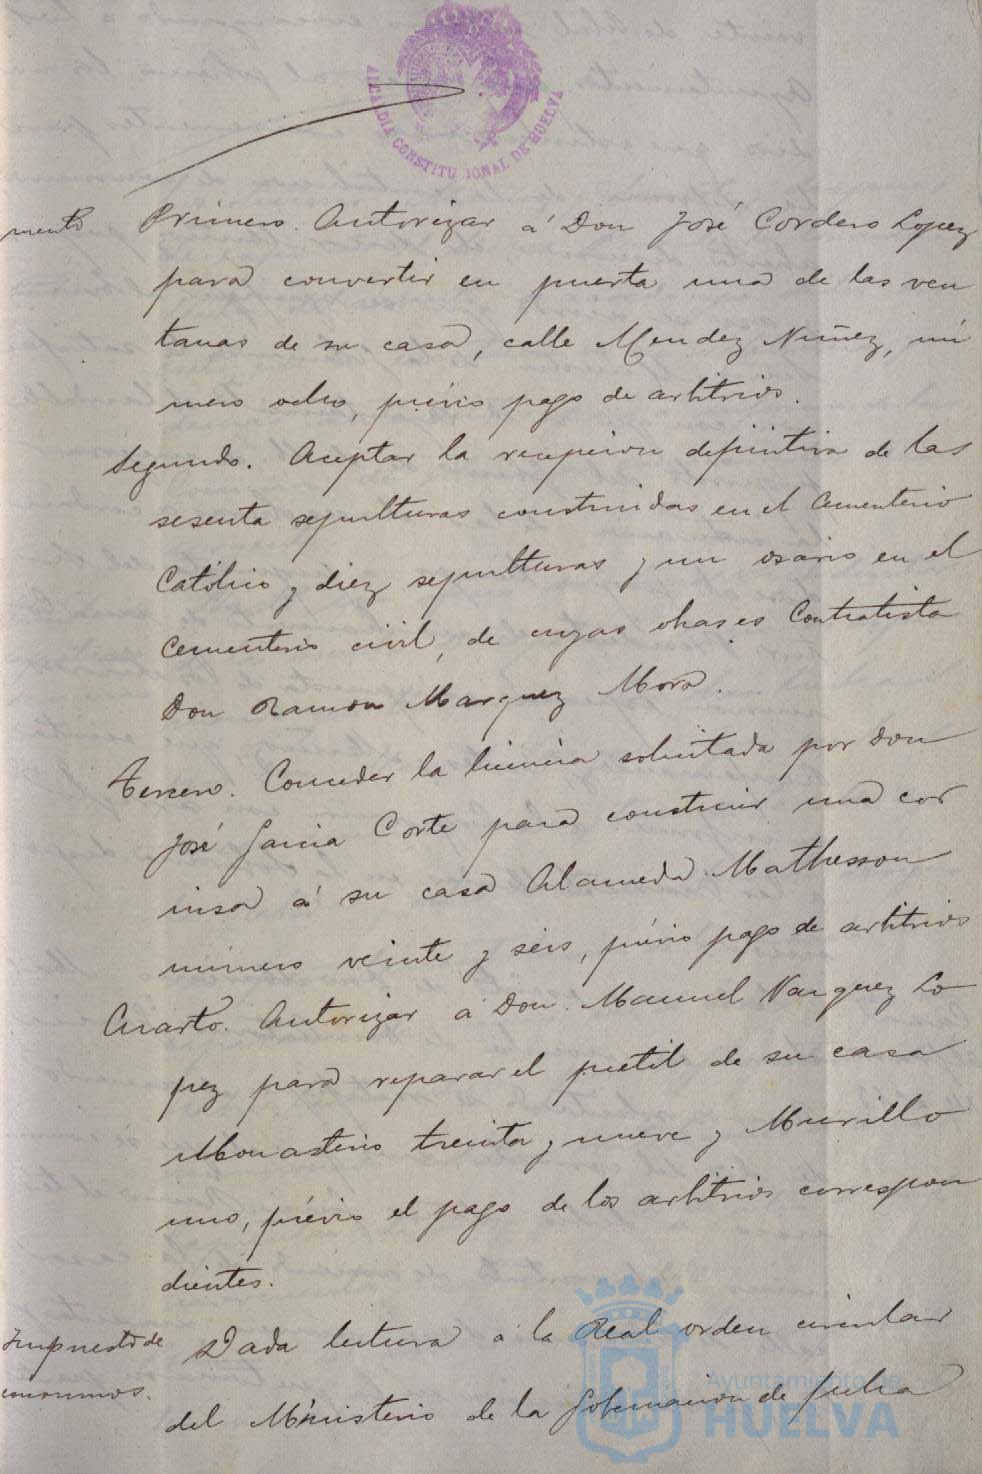 ALCALDIA CONSTITUCIONAL DE HUELVA
mento
Primero. Autorizar á Don José Cordero Lopez
para convertir en puerta una de las ven
tanas de su casa, calle Mendez Nuñez, nú
mero ocho, prévio pago de arbitrios.
Segundo. Aceptar la recepcion definitiva de las
sesenta sepulturas construidas en el Cementerio
Católico y diez sepulturas y un osario en el
Cementerio civil, de cuyas obras es Contratista
Don Ramon Marquez Mora.
Tercero. Conceder la licencia solicitada por Don
José Garcia Corte para construir una cor
nisa á su casa Alameda Mathesson
número veinte y seis, prévio pago de arbitrios
Cuarto. Autorizar á Don Manuel Vazquez Lo
pez para reparar el pretil de su casa
Monasterio treinta y nueve y Murillo
uno, prévio el pago de los arbitrios correspon
dientes.
Impuesto de
consumos.
Dada lectura á la Real orden circular
del Ministerio de la Gobernacion de fecha
Ayuntamiento de
HUELVA